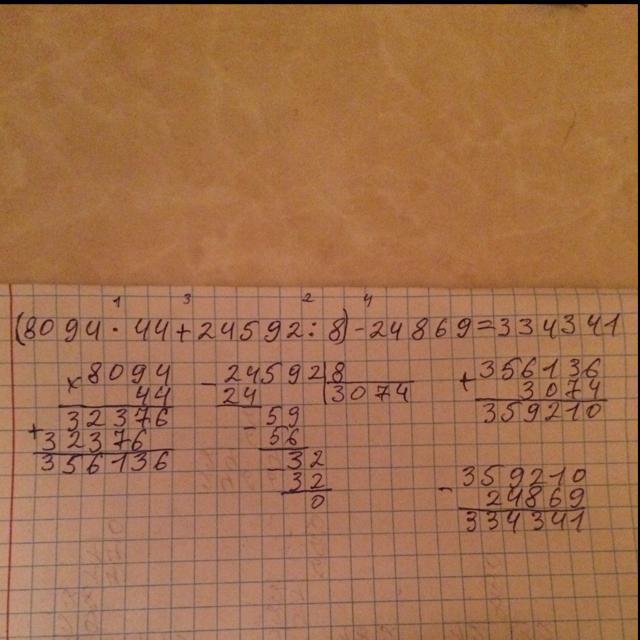 1 3 2 4
(8094·44+24592:8)-24869=334341
×8094
44
+32376
32376
356136
-24592|8
24 3074
-59
56
-32
32
0
+356136
3074
359210
-359210
24869
334341